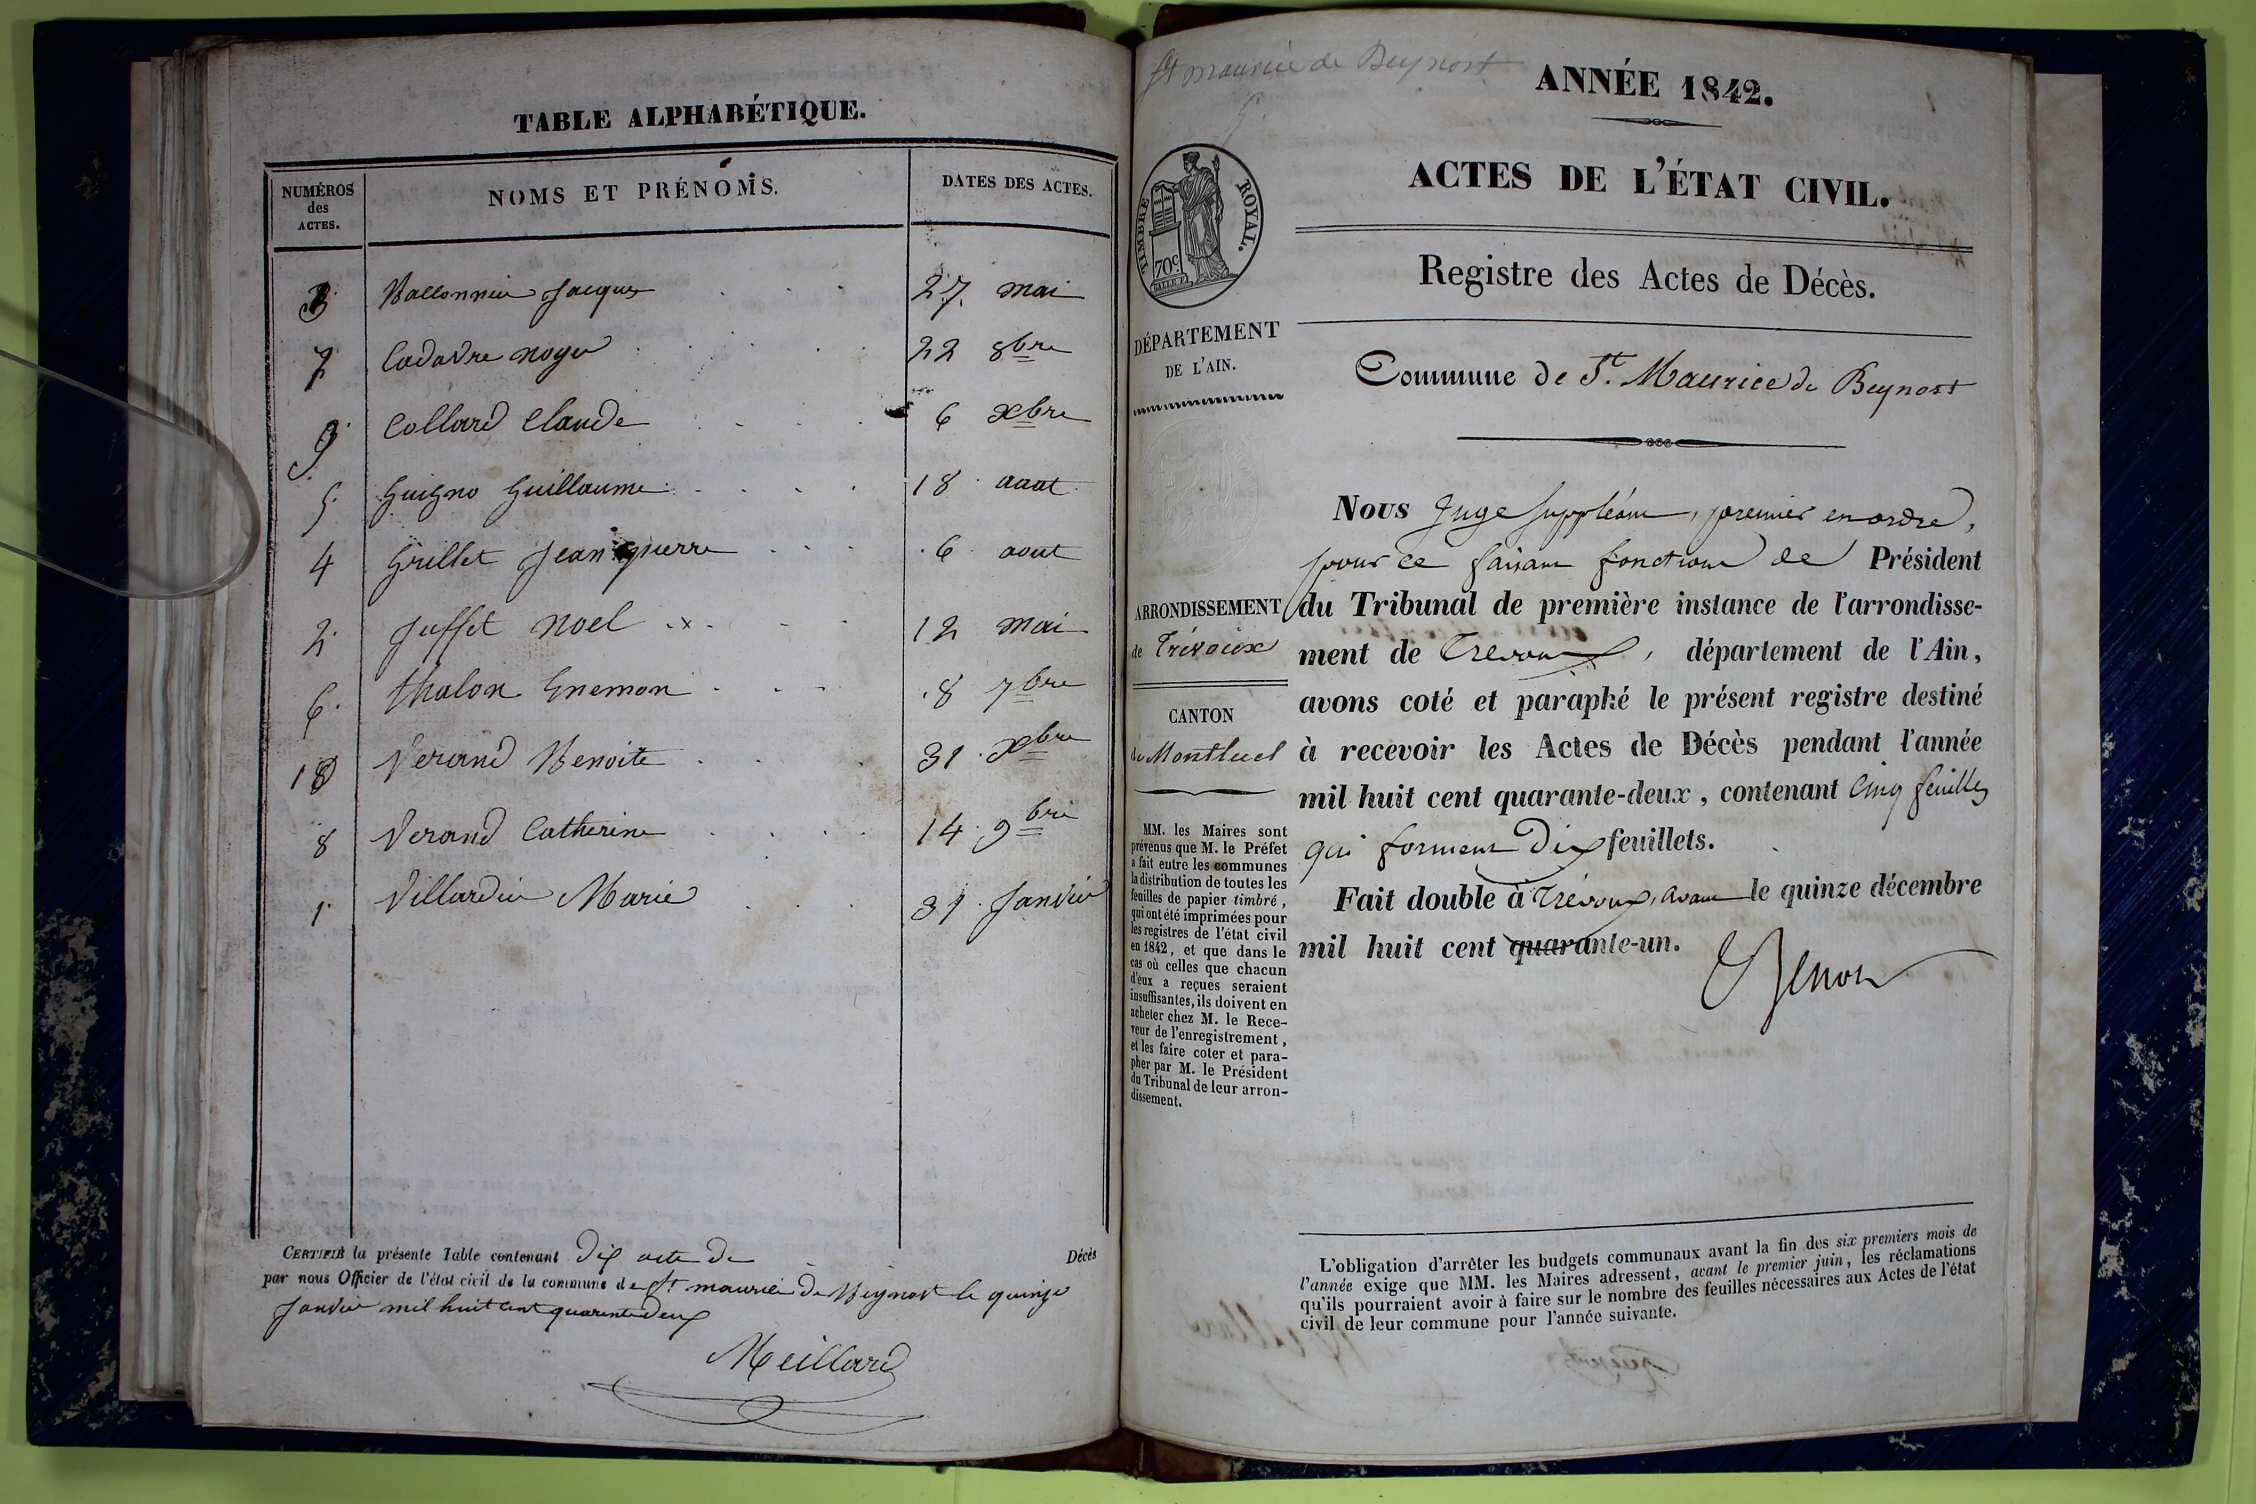 TABLE ALPHABÉTIQUE.
NUMÉROS des ACTES.
NOMS ET PRÉNOMS.
DATES DES ACTES.
3 Ballonnier Jacques 27 mai
7 Cadavre noyé 22 8bre
9 Collard Claude 6 Xbre
5 Guigno Guillaume 18 aout
4 Grillet Jean pierre 6 aout
2 Juffet Noel 12 mai
6 thalon 8 7bre
10 Verand Benoite 31 Xbre
8 Verand Catherine 14 9bre
1 Villardier Marie 31 Janvier
CERTIFIÉ la présente Table contenant dix acte de Décès
par nous Officier de l'état civil de la commune de St maurice de Beynost le quinze
Janvier mil huit cent quarente deux
Meillard
St maurice de Beynost
5.
ANNÉE 1842.
ACTES DE L'ÉTAT CIVIL.
TIMBRE ROYAL.
70c
Registre des Actes de Décès.
DÉPARTEMENT
DE L'AIN.
Commune de St. Maurice de Beynost
ARRONDISSEMENT
de Trévoux
CANTON
de Montluel
MM. les Maires sont
prévenus que M. le Préfet
a fait entre les communes
la distribution de toutes les
feuilles de papier timbré,
qui ont été imprimées pour
les registres de l'état civil
en 1842, et que dans le
cas où celles que chacun
d'eux a reçues seraient
insuffisantes, ils doivent en
acheter chez M. le Rece-
veur de l'enregistrement,
et les faire coter et para-
pher par M. le Président
du Tribunal de leur arron-
dissement.
Nous Juge suppléant, premier en ordre,
pour ce faisant fonctions de Président
du Tribunal de première instance de l'arrondisse-
ment de Trévoux, département de l'Ain,
avons coté et paraphé le présent registre destiné
à recevoir les Actes de Décès pendant l'année
mil huit cent quarante-deux, contenant Cinq feuilles
qui forment Dix feuillets.
Fait double à Trévoux, avant le quinze décembre
mil huit cent quarante-un.
L'obligation d'arrêter les budgets communaux avant la fin des six premiers mois de
l'année exige que MM. les Maires adressent, avant le premier juin, les réclamations
qu'ils pourraient avoir à faire sur le nombre des feuilles nécessaires aux Actes de l'état
civil de leur commune pour l'année suivante.